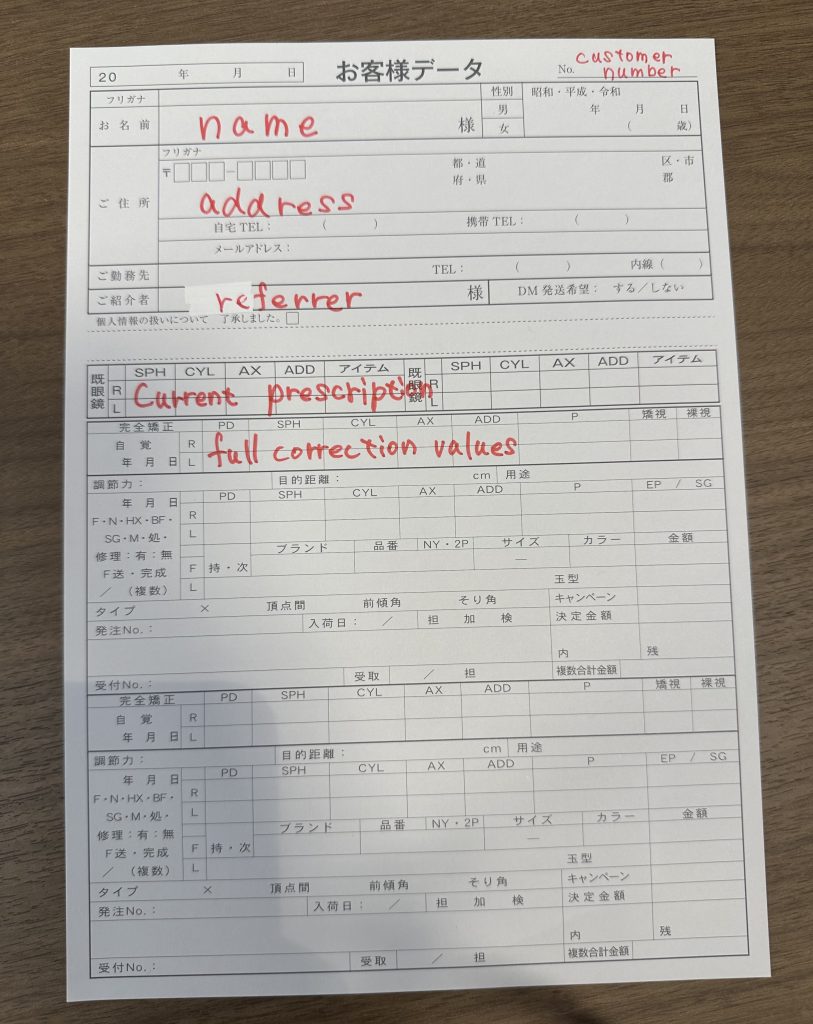 20 年 月 日 お客様データ No. customer number
フリガナ 性別 昭和・平成・令和
お名前 name 様 男 年 月 日
女 ( 歳)
フリガナ
〒 − 都・道 区・市
府・県 郡
ご住所 address
自宅TEL： ( ) 携帯TEL： ( )
メールアドレス：
ご勤務先 TEL： ( ) 内線 ( )
ご紹介者 referrer 様 DM発送希望： する／しない
個人情報の扱いについて 了承しました。
既眼鏡 SPH CYL AX ADD アイテム 既眼鏡 SPH CYL AX ADD アイテム
R R
L Current prescription L
完全矯正 PD SPH CYL AX ADD P 矯視 裸視
自覚 R
年 月 日 L full correction values
調節力： 目的距離： cm 用途
年 月 日 PD SPH CYL AX ADD P EP / SG
F・N・HX・BF・ R
SG・M・処・ L
修理：有：無 ブランド 品番 NY・2P サイズ カラー 金額
F送・完成 F 持・次 —
／ (複数) L 玉型
タイプ × 頂点間 前傾角 そり角 キャンペーン
発注No.： 入荷日： ／ 担 加 検 決定金額
内 残
受付No.： 受取 ／ 担 複数合計金額
完全矯正 PD SPH CYL AX ADD P 矯視 裸視
自覚 R
年 月 日 L
調節力： 目的距離： cm 用途
年 月 日 PD SPH CYL AX ADD P EP / SG
F・N・HX・BF・ R
SG・M・処・ L
修理：有：無 ブランド 品番 NY・2P サイズ カラー 金額
F送・完成 F 持・次 —
／ (複数) L 玉型
タイプ × 頂点間 前傾角 そり角 キャンペーン
発注No.： 入荷日： ／ 担 加 検 決定金額
内 残
受付No.： 受取 ／ 担 複数合計金額